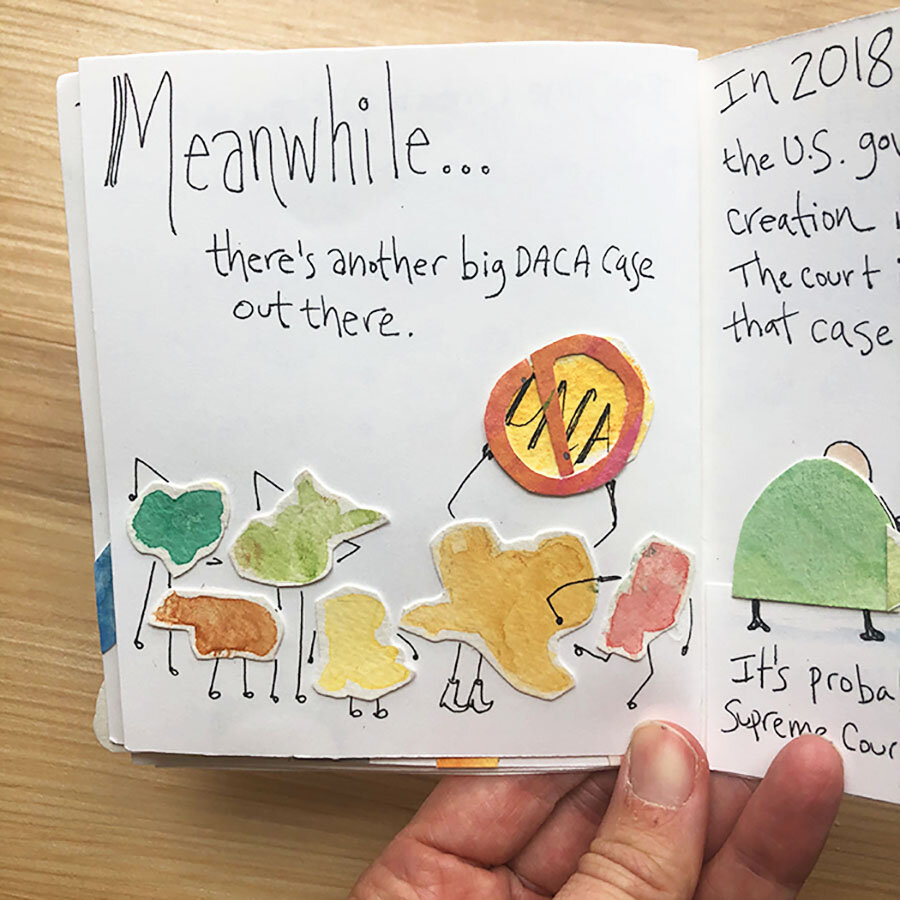 Meanwhile...
there's another big DACA case
out there.
DACA
In 2018
the U.S.
creation
The court
that case
It's
Supreme